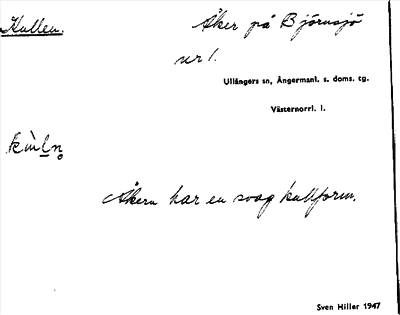 Kullen.
Åker på Björnsjö
nr 1.
Ullångers sn, Ångermanl. s. doms. tg.
Västernorrl. l.
Åkern har en svag kullform.
Sven Hiller 1947